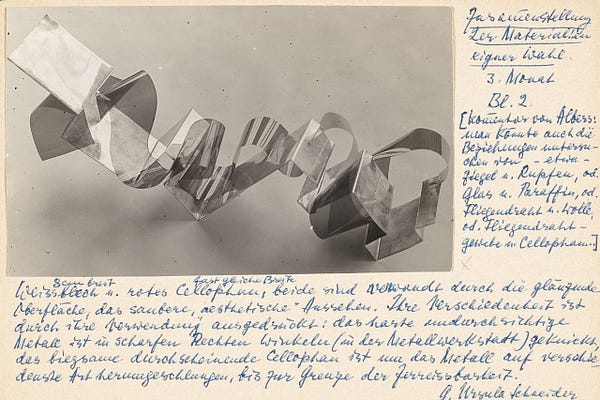 Zusammenstellung
der Materialien
eigner Wahl.
3. Monat
Bl. 2.
[Komentar von Albers:
man könnte auch die
Beziehungen untersu-
chen von - etwa -
Ziegel u. Rupfen, od.
Glas u. Paraffin, od.
Fliegendraht u. Wolle,
od. Fliegendraht-
gewebe u. Cellophan.]
3cm breit fast gleiche Breite
Weissblech u. rotes Cellophan, beide sind verwandt durch die glänzende
Oberfläche, das saubere, "aesthetische" Aussehen. Ihre Verschiedenheit ist
durch ihre Verwendung ausgedrückt: das harte undurchsichtige
Metall ist in scharfen Rechten Winkeln (in der Metallwerkstatt) geknickt,
das biegsame durchscheinende Cellophan ist um das Metall auf verschie-
denste Art herumgeschlungen, bis zur Grenze der Zerreissbarkeit.
Ursula Schneider